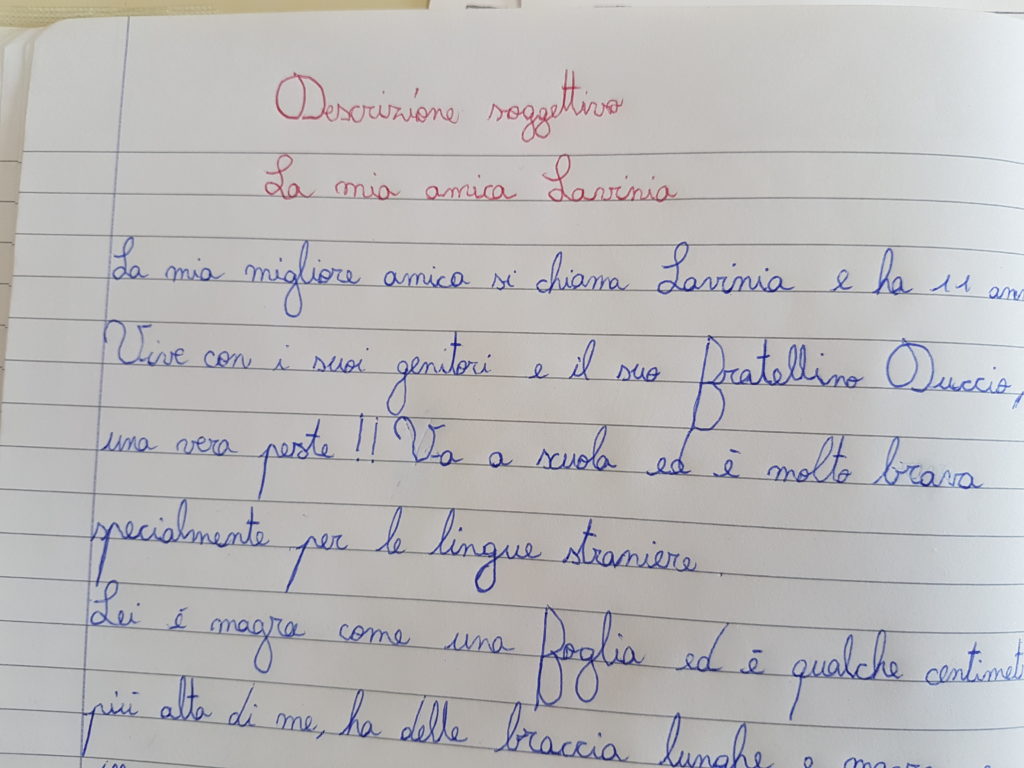 Descrizione soggettiva
La mia amica Lavinia
La mia migliore amica si chiama Lavinia e ha 11 an
Vive con i suoi genitori e il suo fratellino Duccio,
una vera peste!! Va a scuola ed è molto brava
specialmente per le lingue straniere.
Lei è magra come una foglia ed è qualche centimet
più alta di me, ha delle braccia lunghe e